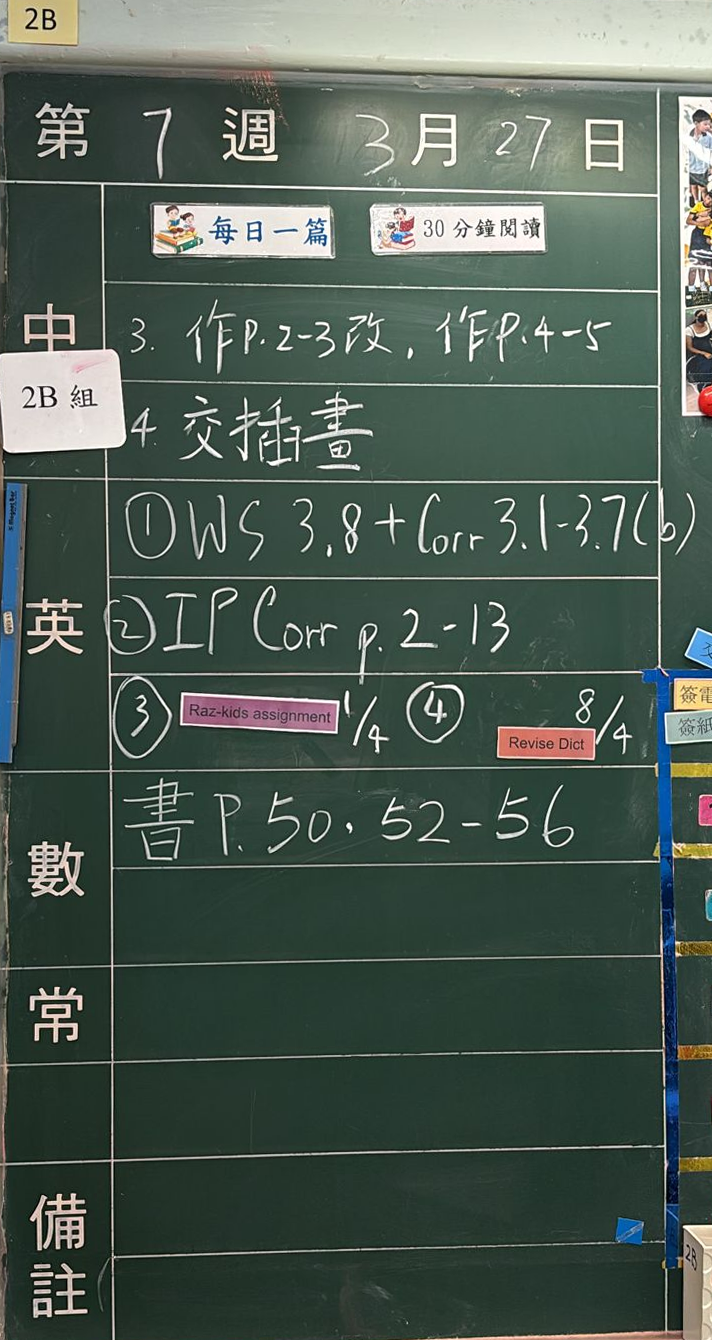 2B
第 7 週 3月 27 日
每日一篇 30分鐘閱讀
中
3. 作P.2-3改, 作P.4-5
2B 組
4. 交插畫
英
① WS 3.8 + Corr 3.1-3.7(b)
② IP Corr p. 2-13
③ Raz-kids assignment 1/4 ④ Revise Dict 8/4
簽電
簽紙
數
書 P. 50, 52-56
常
備註
2B